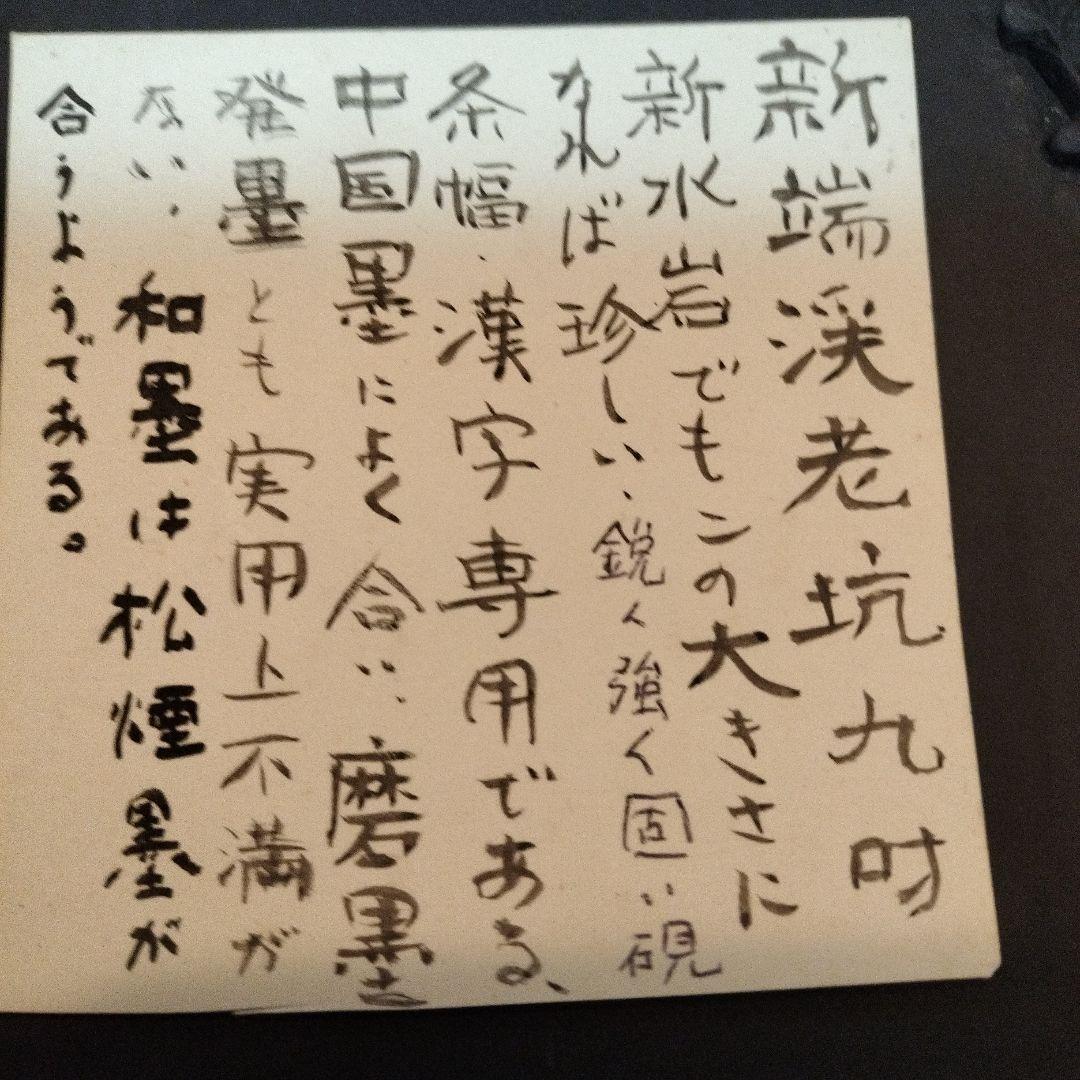 新端渓老坑九吋
新水岩でもこの大きさに
なれば珍しい、鋭く強く固い硯
条幅、漢字専用である、
中国墨によく合い、磨墨
発墨とも実用上不満が
ない、和墨は松煙墨が
合うようである。